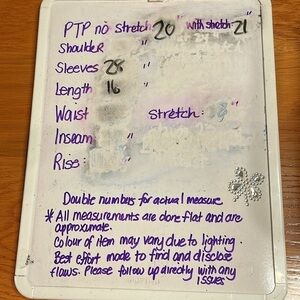 PTP no stretch: 20 " with stretch: 21
Shoulder "
Sleeves 28 "
Length 16 "
Waist " Stretch:
Inseam "
Rise: "
Double numbers for actual measure
* All measurements are done flat and are
approximate.
Colour of item may vary due to lighting.
Best effort made to find and disclose
flaws. Please follow up directly with any
issues